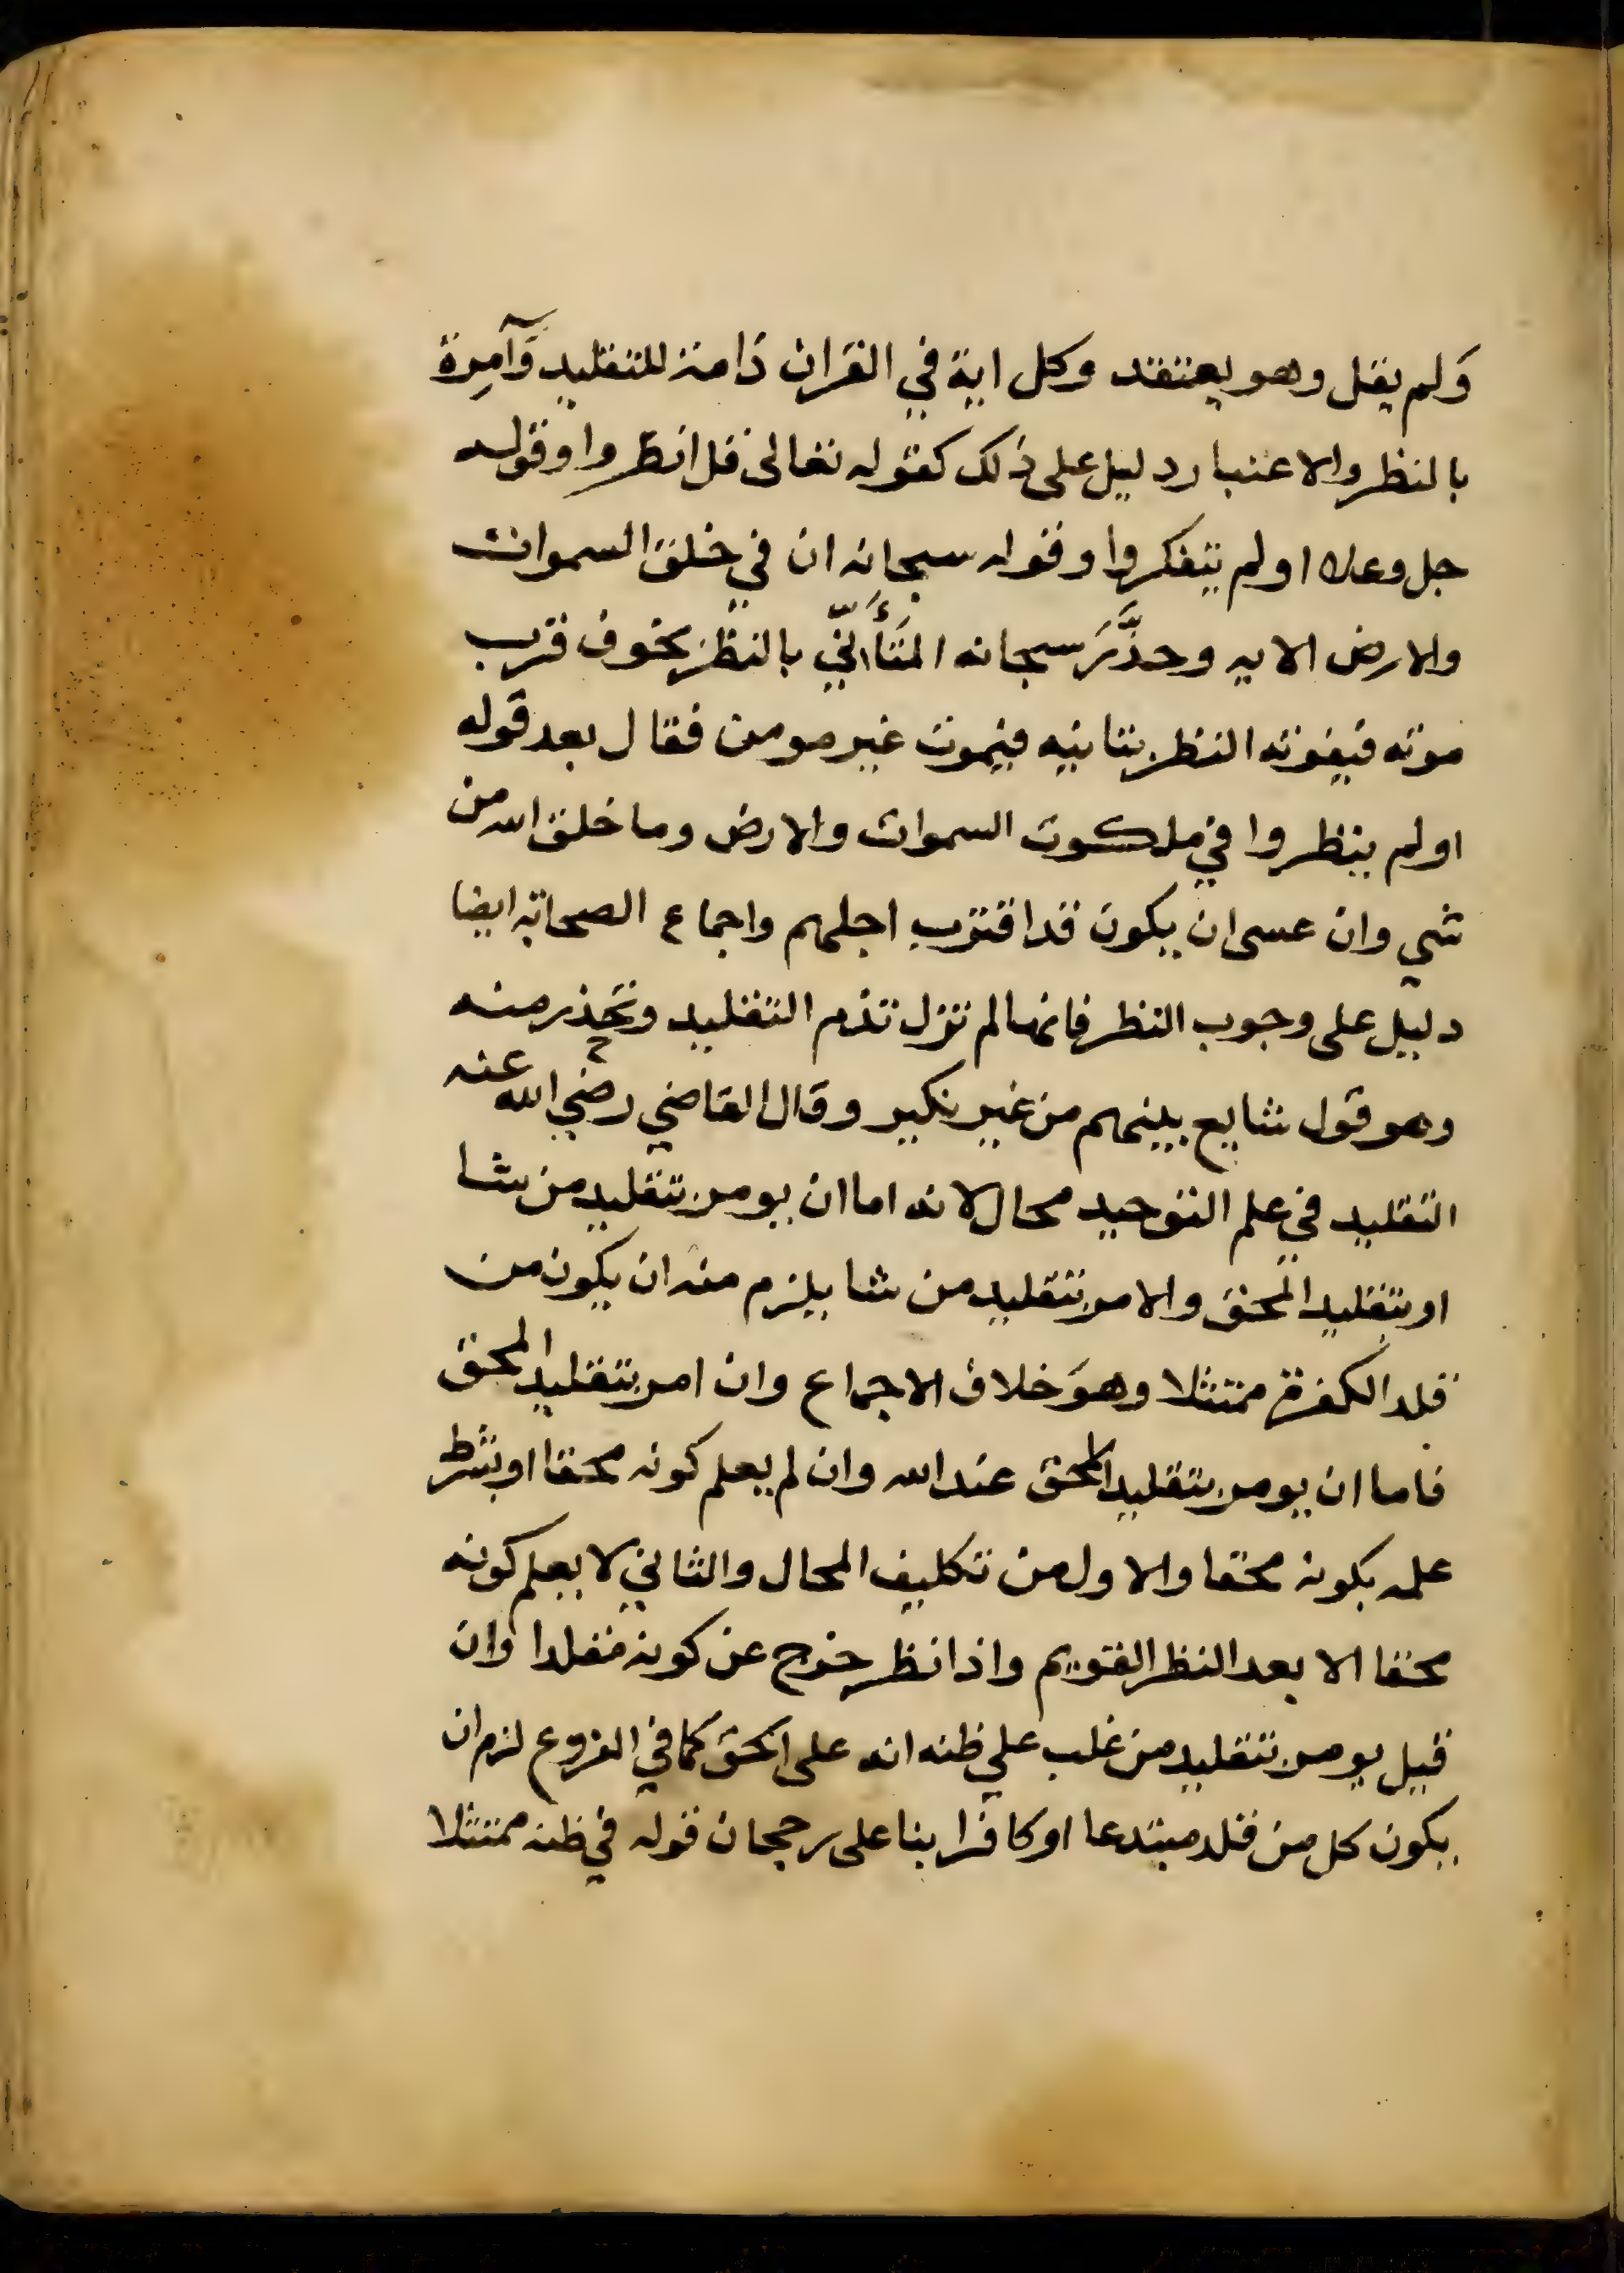 وَلم يقل وهو يعتقد وكل اية في القران ذامة للتقليد وَآمِرة
بالنظر والاعتبار دليل على ذلك كقوله تعالى قل انظروا وقوله
جل وعلا اولم يتفكروا وقوله سبحانه ان في خلق السموات
والارض الايه وحذَّرَ سبحانه المتَأَنِّي بالنظر بخوف قرب
موته فيفوته النظر بتانيه فيموت غير مومن فقال بعد قوله
اولم ينظروا في ملكوت السموات والارض وما خلق الله من
شي وان عسى ان يكون قد اقترب اجلهم واجماع الصحابة ايضا
دليل على وجوب النظر فانها لم تزل تذم التقليد وتحذر منه
وهو قول شايع بينهم من غير نكير وقال القاضي رضي الله عنه
التقليد في علم التوحيد محال لانه اما ان يومر بتقليد من شا
او بتقليد المحق والامر بتقليد من شا يلزم منه ان يكون من
قلد الكفرة ممتثلا وهوَ خلاف الاجماع وان امر بتقليد المحق
فاما ان يومر بتقليد المحق عند الله وان لم يعلم كونه محقا او بشرط
علمه بكونه محقا والاول من تكليف المحال والثاني لا يعلم كونه
محقا الا بعد النظر القويم واذا نظر خرج عن كونه مقلدا وان
قيل يومر بتقليد من غلب علي ظنه انه على الحق كما في الفروع لزم ان
يكون كل من قلد مبتدعا او كافرا بنا على رجحان قوله في ظنه ممتثلا